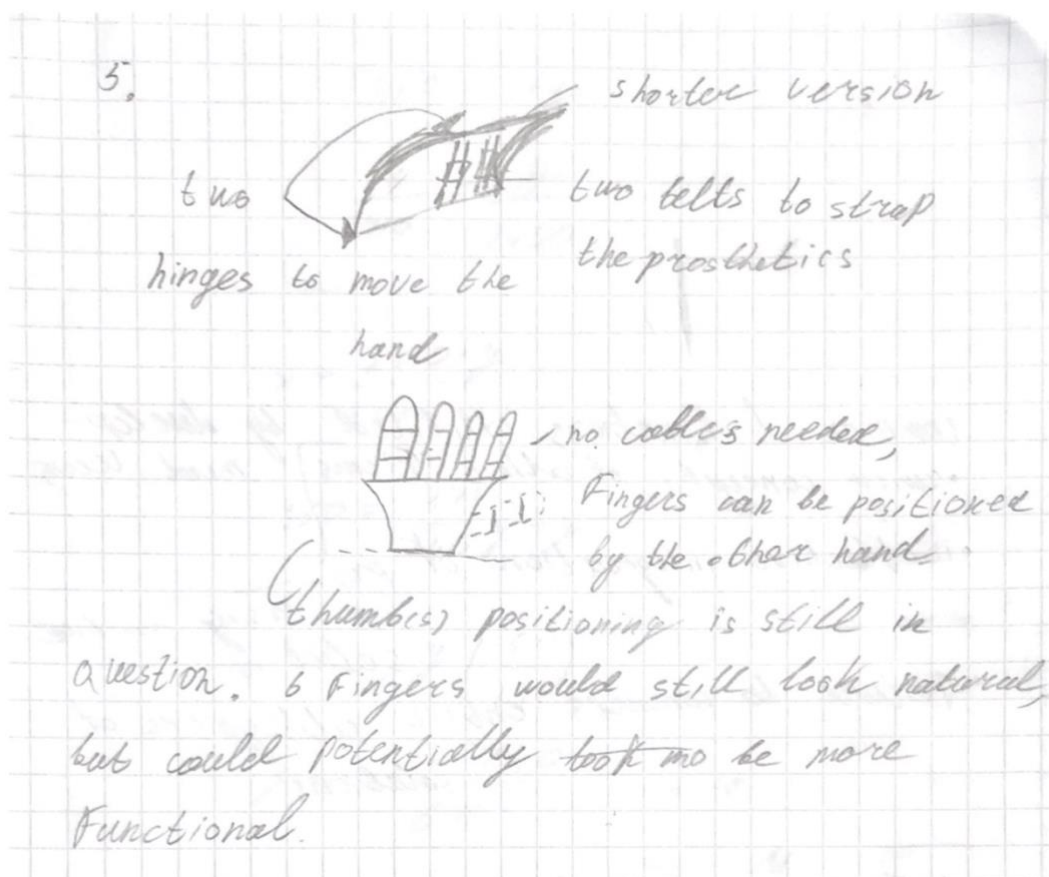 5.
shorter version
two
two belts to strap
the prosthetics
hinges to move the
hand
no cables needed,
Fingers can be positioned
by the other hand.
thumb(s) positioning is still in
question. 6 Fingers would still look natural,
but could potentially look mo be more
Functional.